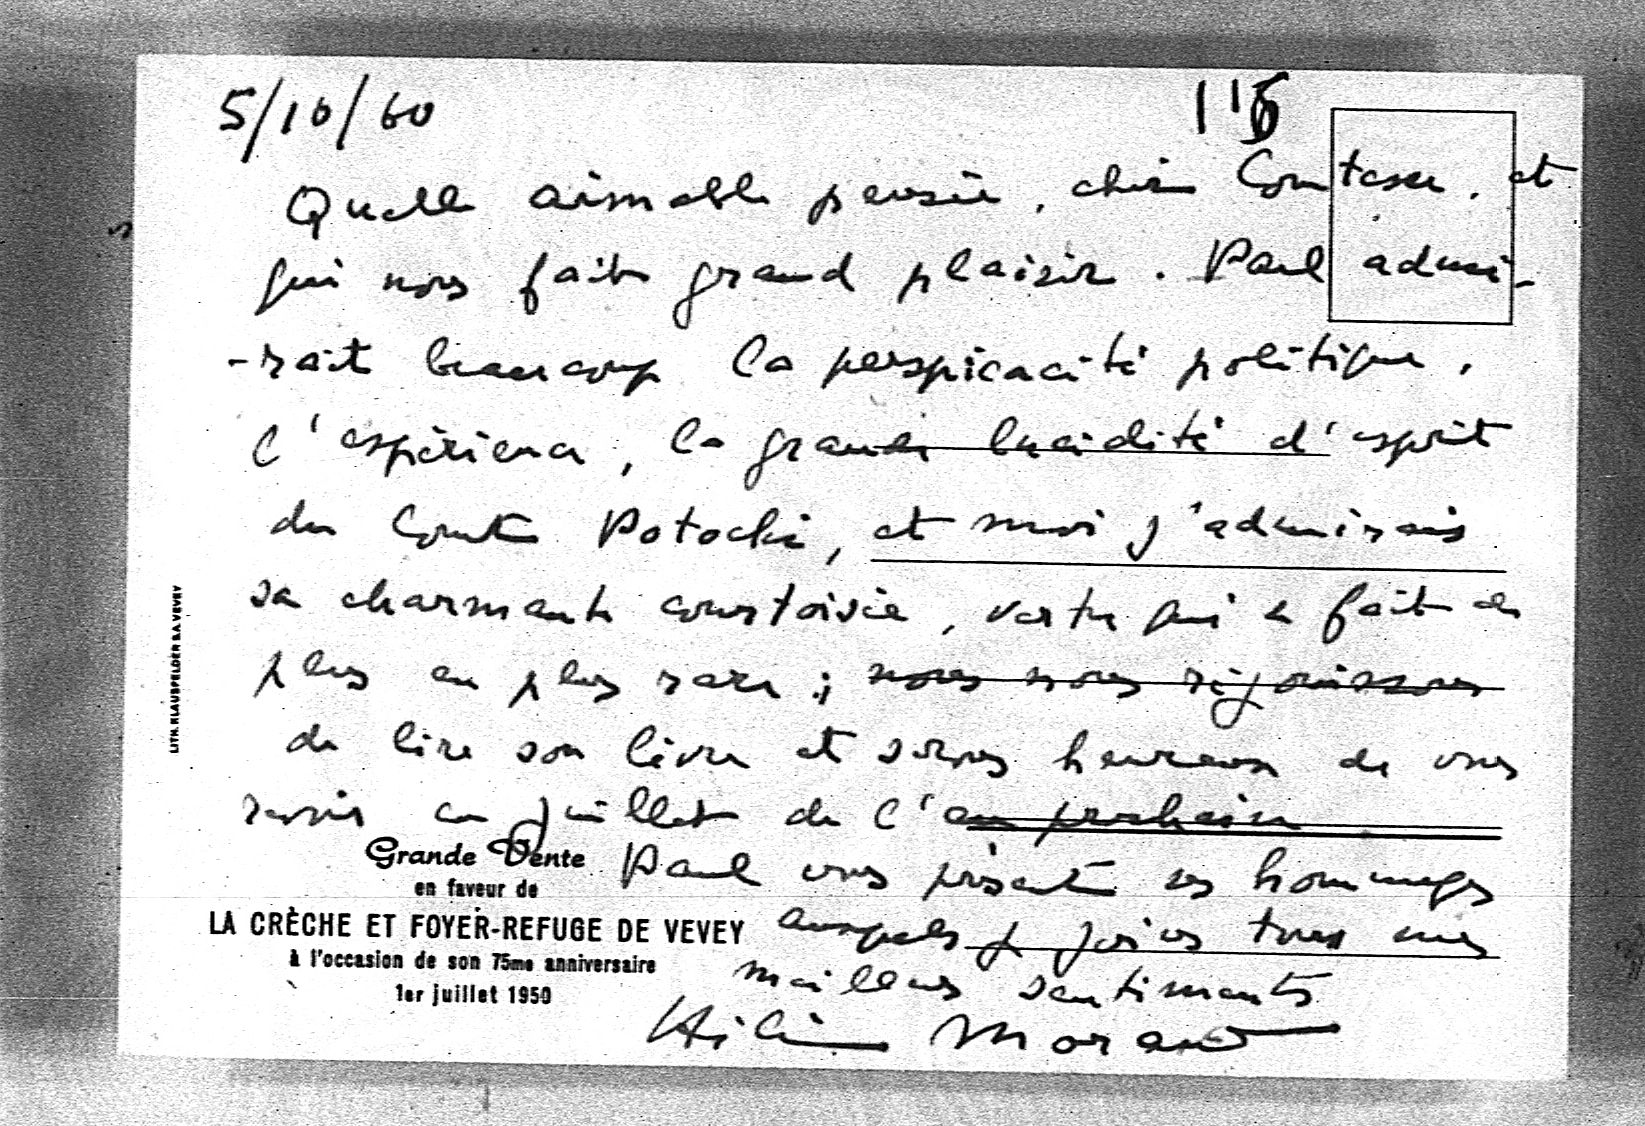 5/10/60
116
Quelle aimable pensée, chère Comtesse, et
qui nous fait grand plaisir. Paul admi-
-rait beaucoup la perspicacité politique,
l'expérience, la grande lucidité d'esprit
du Comte Potocki, et moi j'admirais
sa charmante courtoisie, vertu qui se fait de
plus en plus rare ; nous nous réjouissons
de lire son livre et serons heureux de vous
revoir en juillet de l'an prochain.
Paul vous présente ses hommages
auxquels je joins tous mes
meilleurs sentiments
Hélène Morand
Grande Vente
en faveur de
LA CRÈCHE ET FOYER-REFUGE DE VEVEY
à l'occasion de son 75me anniversaire
1er juillet 1950
LITH. KLAUSFELDER S.A. VEVEY